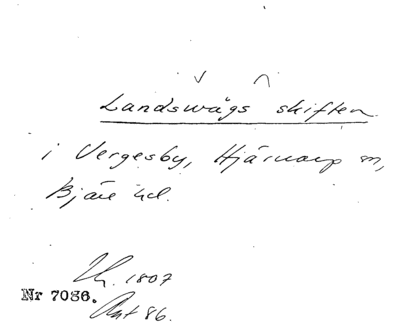 Landswägs skiften
i Vergesby, Hjärnarp sn,
Bjäre hd.
1807
Nr 7086.
Akt 86.